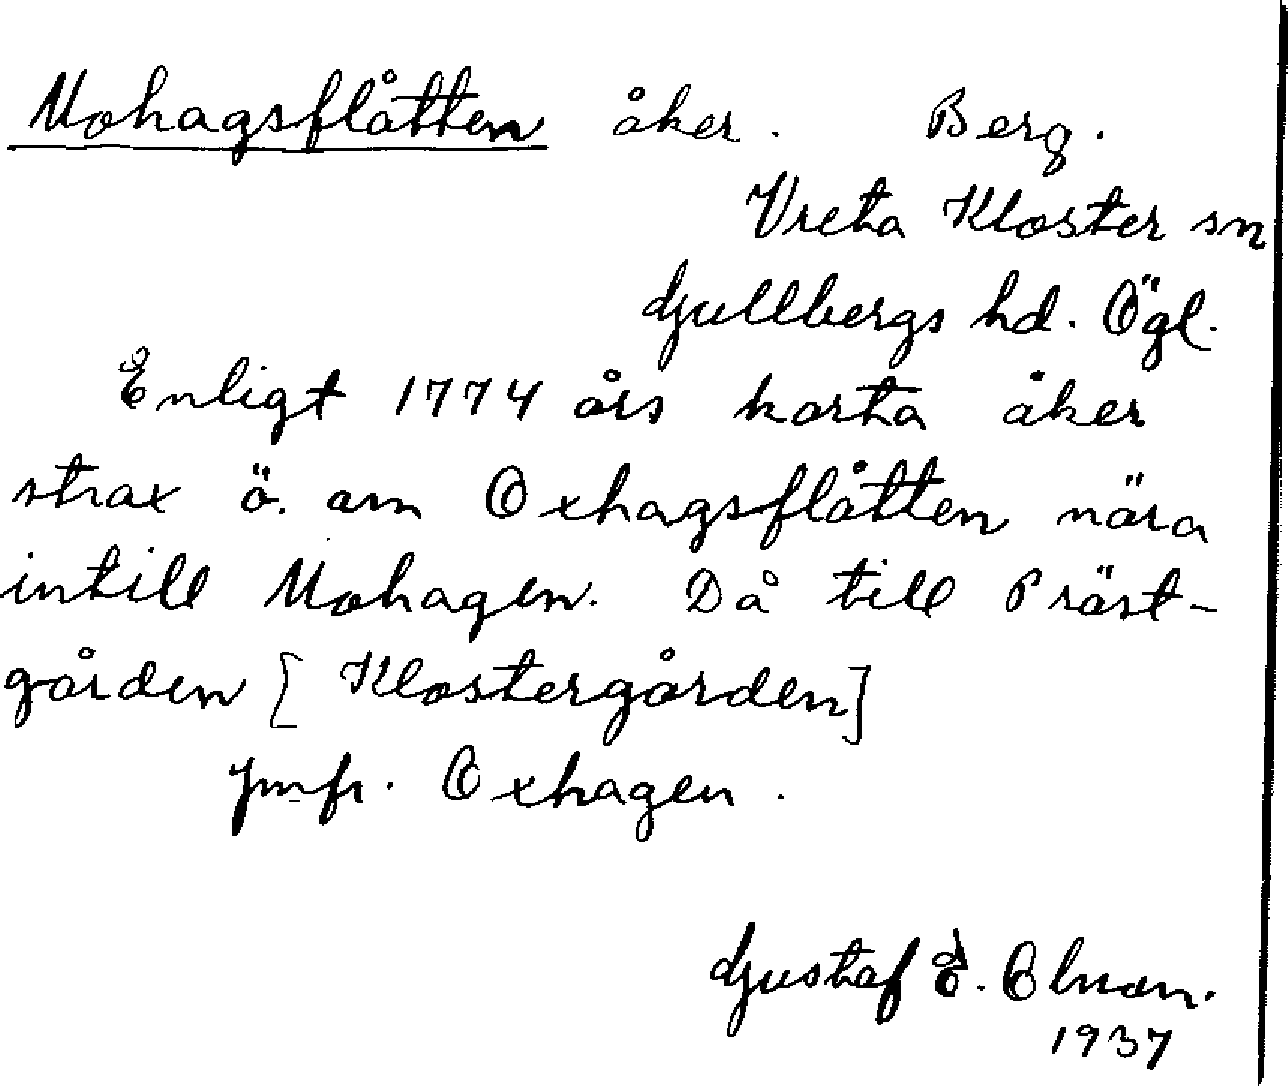 Mohagsflåtten åker. Berg.
Vreta Kloster sn
Gullbergs hd. Ögl.
Enligt 1774 års karta åker
strax ö. om Oxhagsflåtten nära
intill Mohagen. Då till Präst-
gården [Klostergården]
Jmfr. Oxhagen.
Gustaf E. Olman.
1937